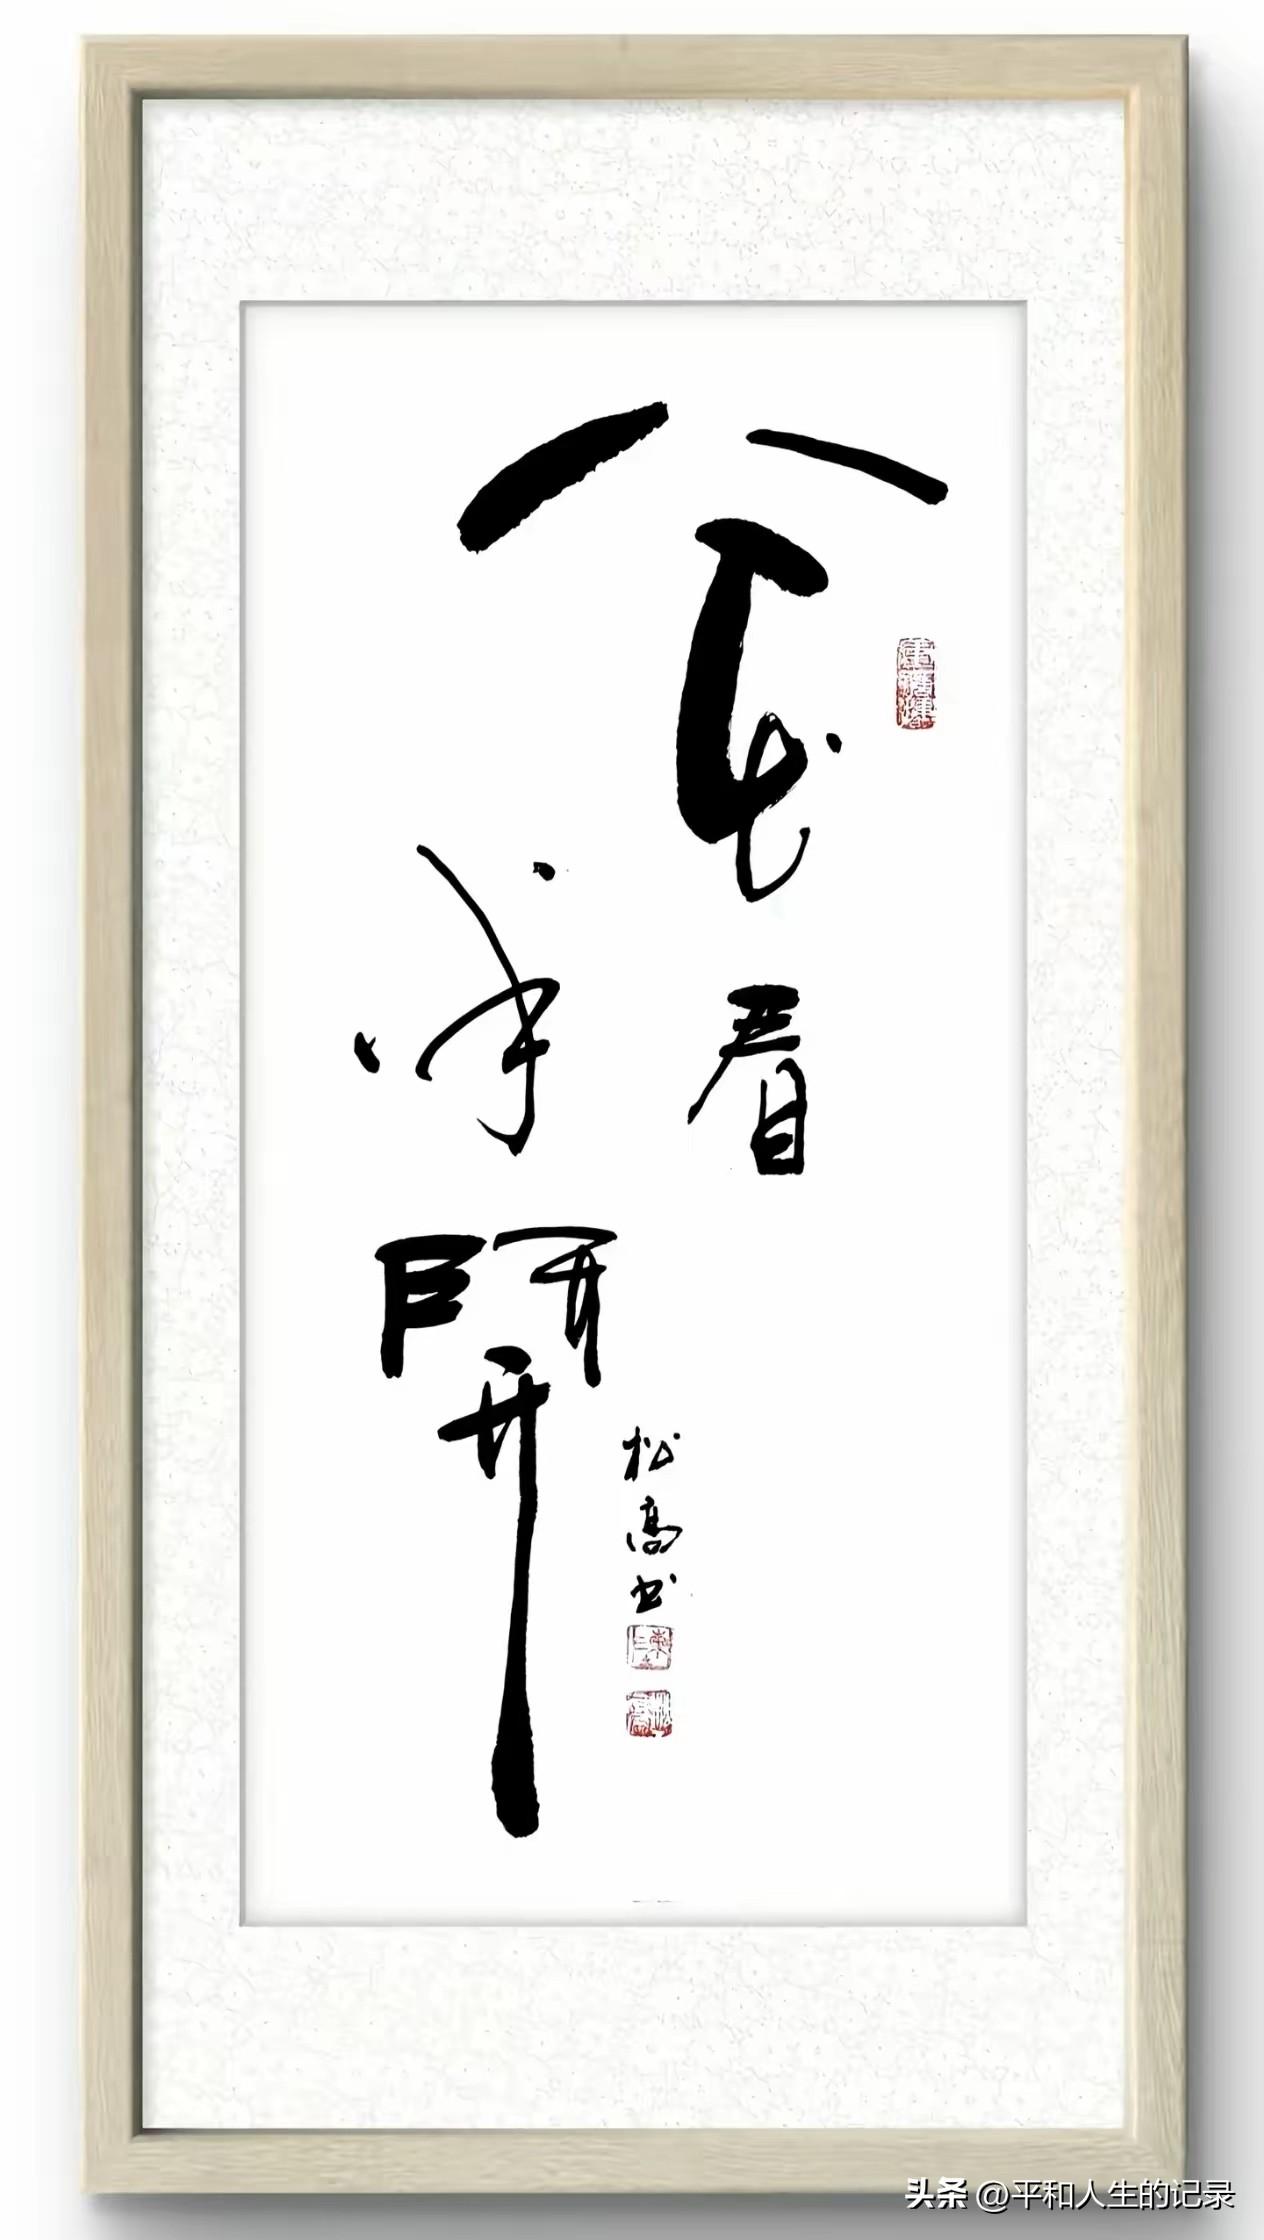 花看
半開
松高书
头条 @平和人生的记录